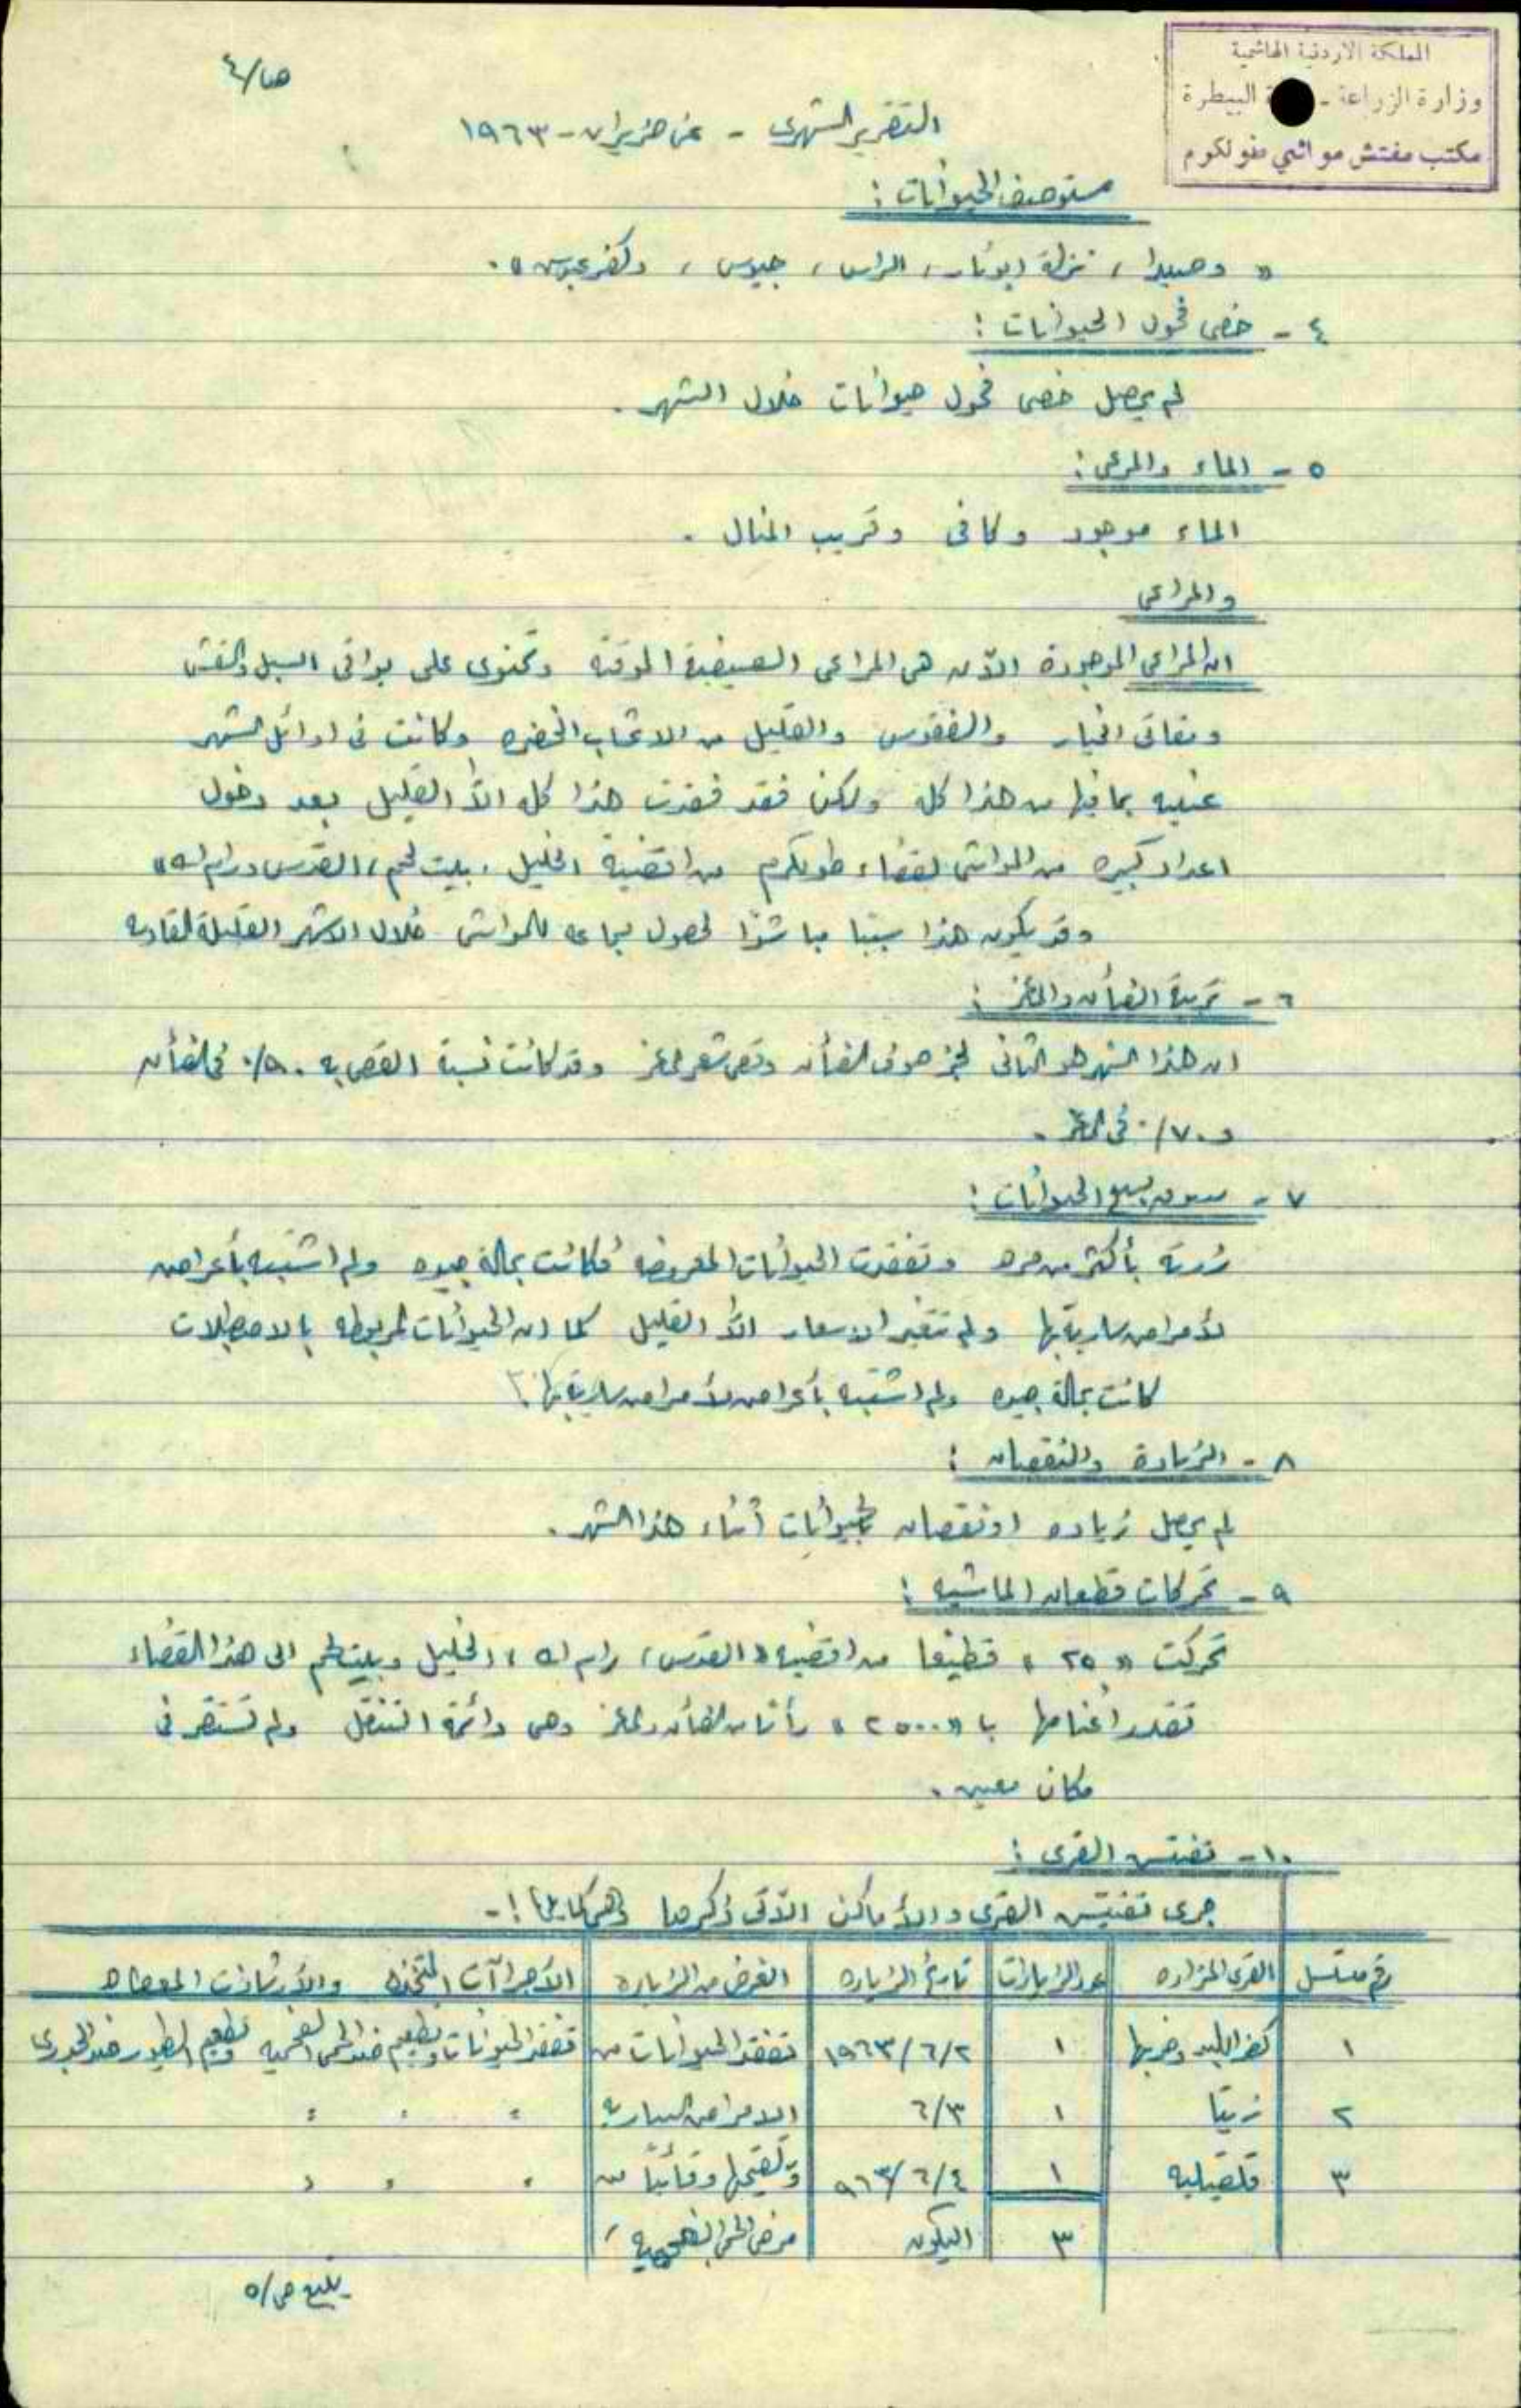 المملكة الاردنية الهاشمية
وزارة الزراعة - البيطرة
مكتب مفتش مواشي طولكرم
ص/٤
التقرير الشهري - عن حزيران - ١٩٦٣
مستوصف الحيوانات :
« وصيدا ، نزلة ابو نار ، الراس ، جيوس ، وكفر عبوس » .
٤ - خصى فحول الحيوانات :
لم يحصل خصى فحول حيوانات خلال الشهر .
٥ - الماء والمرعى :
الماء موجود وكافى وقريب المنال .
والمراعى
ان المراعى الموجودة الآن هى المراعى الصيفية الموقته وتحتوى على بواقى السبل والقش
ومقاثى الخيار والفقوس والقليل من الاعشاب الخضره وكانت فى اوائل الشهر
غنيه بما فيها من هذا كله ولكن فقد فقدت هذا كله الاّ القليل بعد دخول
اعداد كبيره من المواشى لقضاء طولكرم من اقضية الخليل ، بيت لحم ، القدس ورام الله »
وقد يكون هذا سببا مباشرًا لحصول مجاعه للمواشى خلال الاشهر القليلة القادمه
٦ - تربية الضأن والماعز :
ان هذا الشهر هو الثانى لجز صوف الضأن وقص شعر الماعز وقد كانت نسبة القص به ٥٠٪ فى الضأن
و ٧٠٪ فى الماعز .
٧ - سوق بيع الحيوانات :
زرته بأكثر من مره وتفقدت الحيوانات المعروضه فكانت بحالة جيده ولم اشتبه بأعراض
لأمراض ساريه بها ولم تتغير الاسعار الاّ القليل كما ان الحيوانات المربوطه بالاصطبلات
كانت بحالة جيده ولم اشتبه بأعراض لأمراض ساريه بها .
٨ - الزيادة والنقصان :
لم يحصل زياده او نقصان بالحيوانات أثناء هذا الشهر .
٩ - تحركات قطعان الماشيه :
تحركت « ٢٥ » قطيعا من اقضيه « القدس ، رام الله ، الخليل وبيت لحم الى هذا القضاء
تقدر اغنامها با « ٢٥٠٠ » رأسا من الضأن والماعز وهى دائمة التنقل ولم تستقر فى
مكان معين .
١٠ - تفتيش القرى :
جرى تفتيش القرى والأماكن الآتى ذكرها وهى كما يلى :-
رقم متسلسل القرى المزاره عدد الزيارات تاريخ الزياره الغرض من الزياره الأجراآت المتخذه والأرشادات المعطاه
١ كفر اللبد وخربها ١ ١٩٦٣/٦/٢ تفقد الحيوانات من تفقد الحيوانات وتطعيم ضد الحمى الفحميه وتطعيم الطيور ضد الجدرى
٢ زيتا ١ ٦/٣ الامراض الساريه " " "
٣ قلقيليه ١ ٩٦٣/٦/٤ وتلقيحها وقائيًا من " " "
٣ اليكون مرض الحمى الفحميه /
يتبع ص/٥